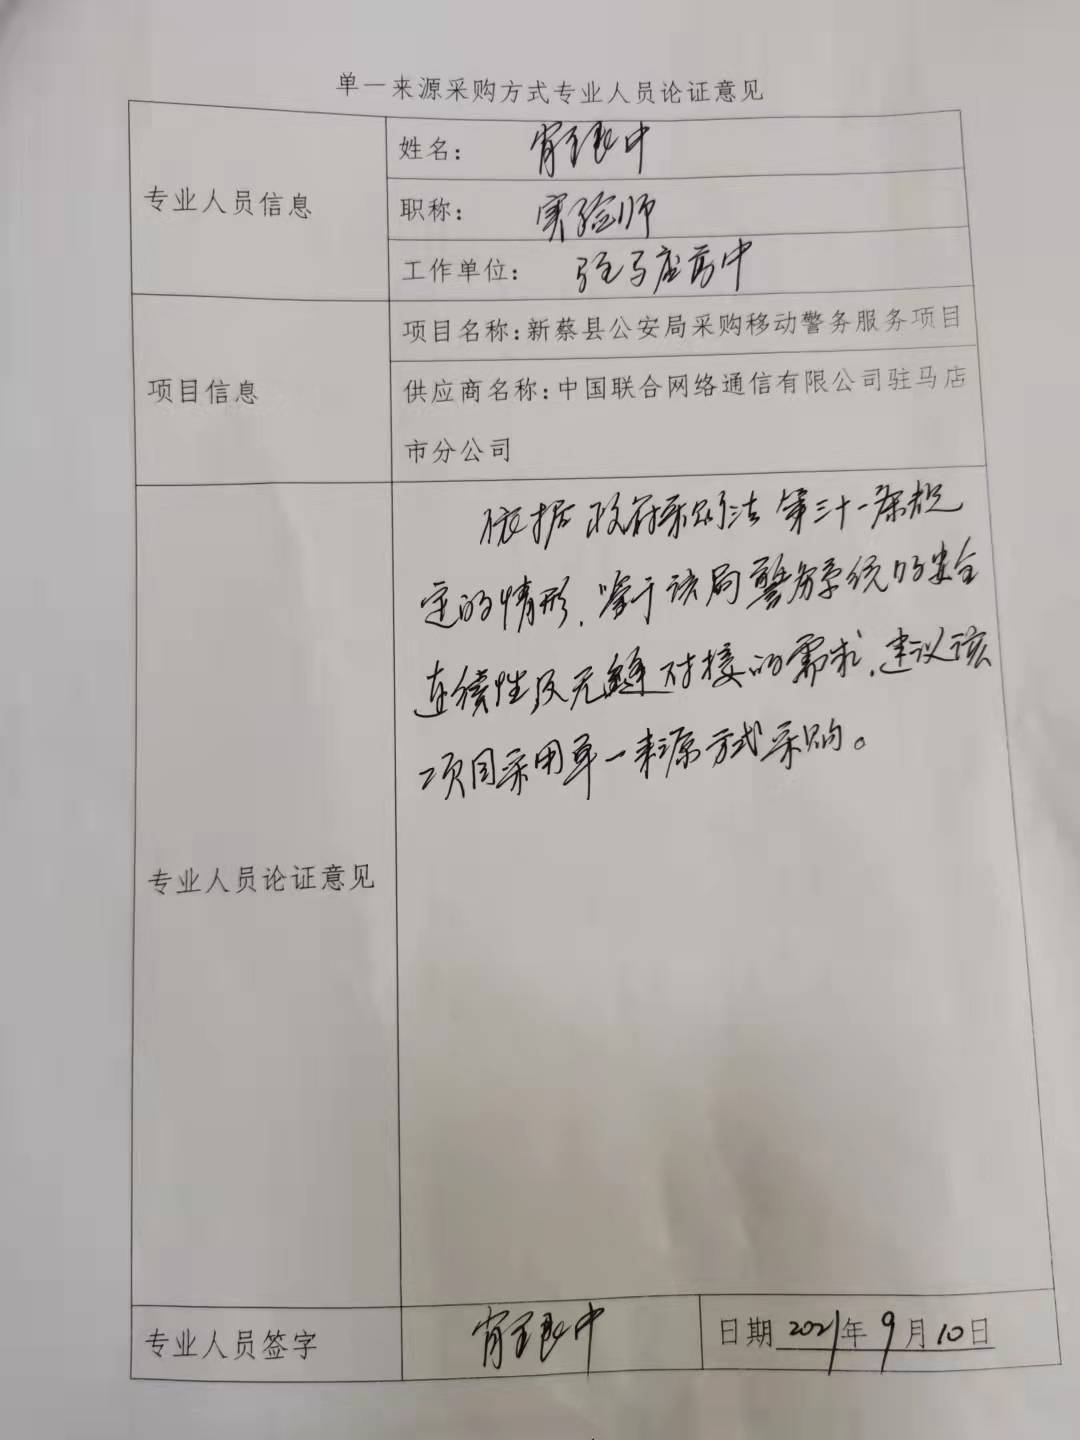 单一来源采购方式专业人员论证意见
专业人员信息
姓名：
职称：实验师
工作单位：驻马店高中
项目信息
项目名称：新蔡县公安局采购移动警务服务项目
供应商名称：中国联合网络通信有限公司驻马店
市分公司
专业人员论证意见
依据政府采购法第三十一条规
定的情形，鉴于该局警务系统的安全
连续性及无缝对接的需求，建议该
项目采用单一来源方式采购。
专业人员签字
日期2021年9月10日